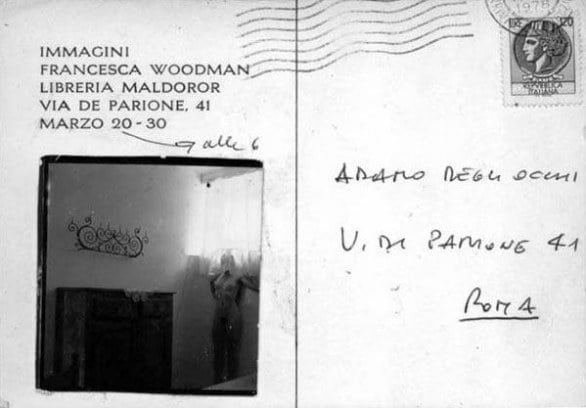 IMMAGINI
FRANCESCA WOODMAN
LIBRERIA MALDOROR
VIA DE PARIONE, 41
MARZO 20-30
alle 6
1978
LIRE 120
REPUBBLICA
ITALIANA
ADAMO DEGLI OCCHI
V. DI PARIONE 41
ROMA